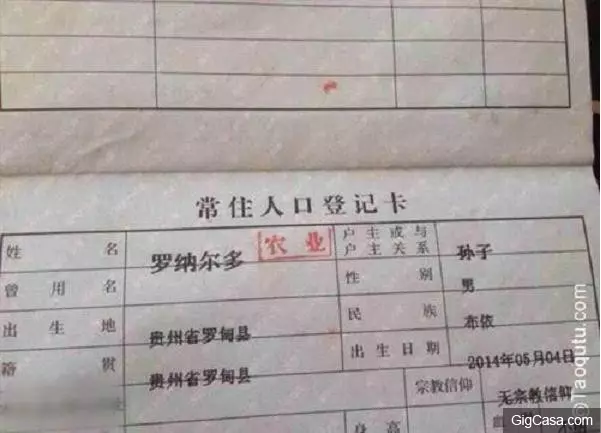 常住人口登记卡
姓 名 罗纳尔多 农业 户主或与户主关系 孙子
曾用名 性 别 男
出生地 贵州省罗甸县 民 族 布依
籍 贯 贵州省罗甸县 出生日期 2014年05月04日
宗教信仰 无宗教信仰
身高
©Taoqutu.com
GigCasa.com